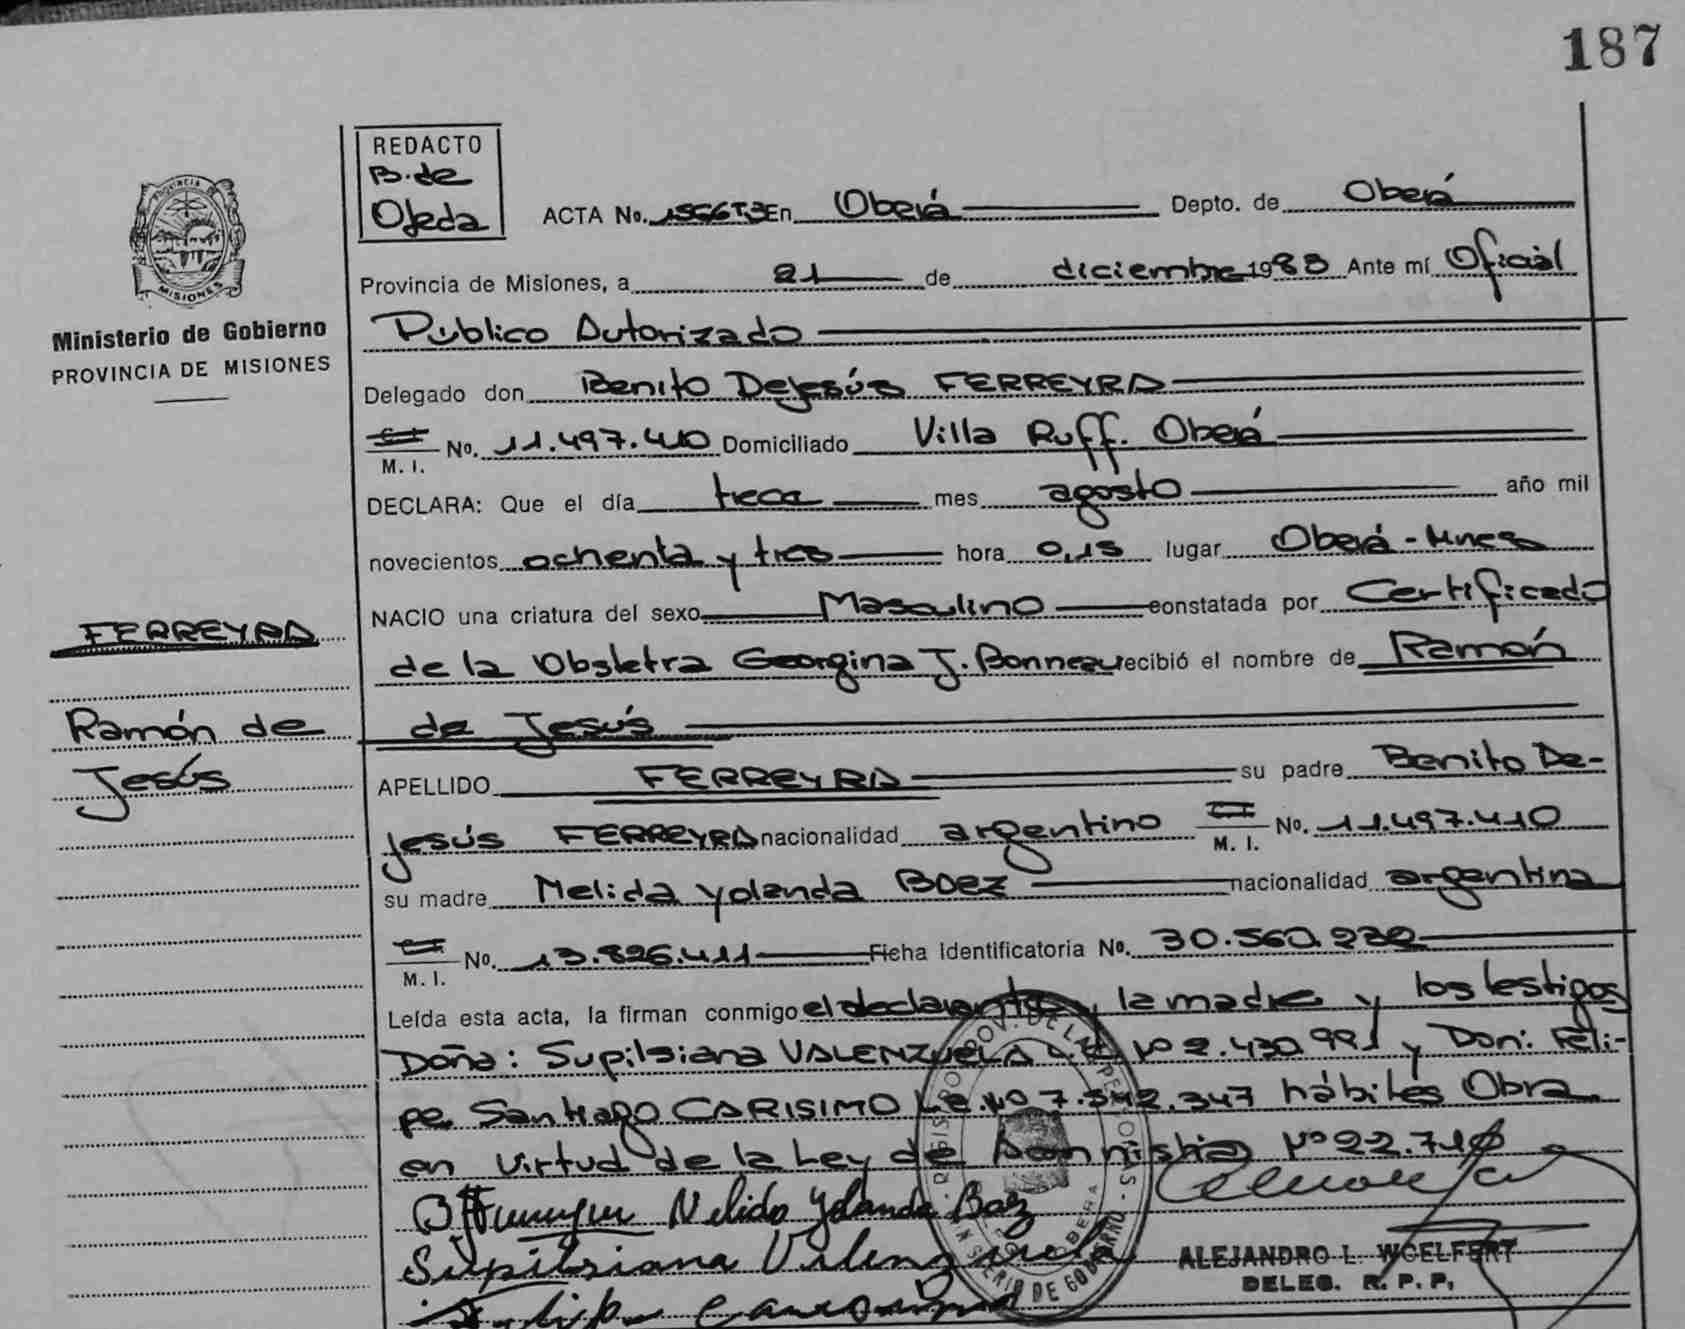 187
REDACTO
B. de
Ojeda
ACTA No. En Oberá Depto. de Oberá
Provincia de Misiones, a 21 de diciembre 1983 Ante mí Oficial
Público Autorizado
Delegado don Benito DeJesús FERREYRA
C.I. M. I. No. 11.497.410 Domiciliado Villa Ruff. Oberá
DECLARA: Que el día trece mes agosto año mil
novecientos ochenta y tres hora 0,15 lugar Oberá - Mnes
NACIO una criatura del sexo Masculino constatada por Certificado
de la Obstetra Georgina J. Bonneau recibió el nombre de Ramón
de Jesús
APELLIDO FERREYRA su padre Benito De-
jesús FERREYRA nacionalidad argentino C.I. M. I. No. 11.497.410
su madre Nelida Yolanda BOEZ nacionalidad argentina
C.I. M. I. No. 13.896.411 Ficha Identificatoria No. 30.560.232
Leída esta acta, la firman conmigo el declarante, la madre y los testigos
Doña: Supilsiana VALENZUELA Nº 2.430.991 y Don: Feli-
pe Santiago CARISIMO L.E. Nº 7.542.347 hábiles Obra
en virtud de la Ley de Amnistia Nº 22.710
Nelida Yolanda Boez
Supilsiana Valenzuela
ALEJANDRO L. WOELFERT
DELEG. R. P. P.
PROVINCIA DE MISIONES
Ministerio de Gobierno
PROVINCIA DE MISIONES
FERREYRA
Ramón de
Jesús
REGISTRO PROV. DE LAS PERSONAS
MINISTERIO DE GOBIERNO
OBERA